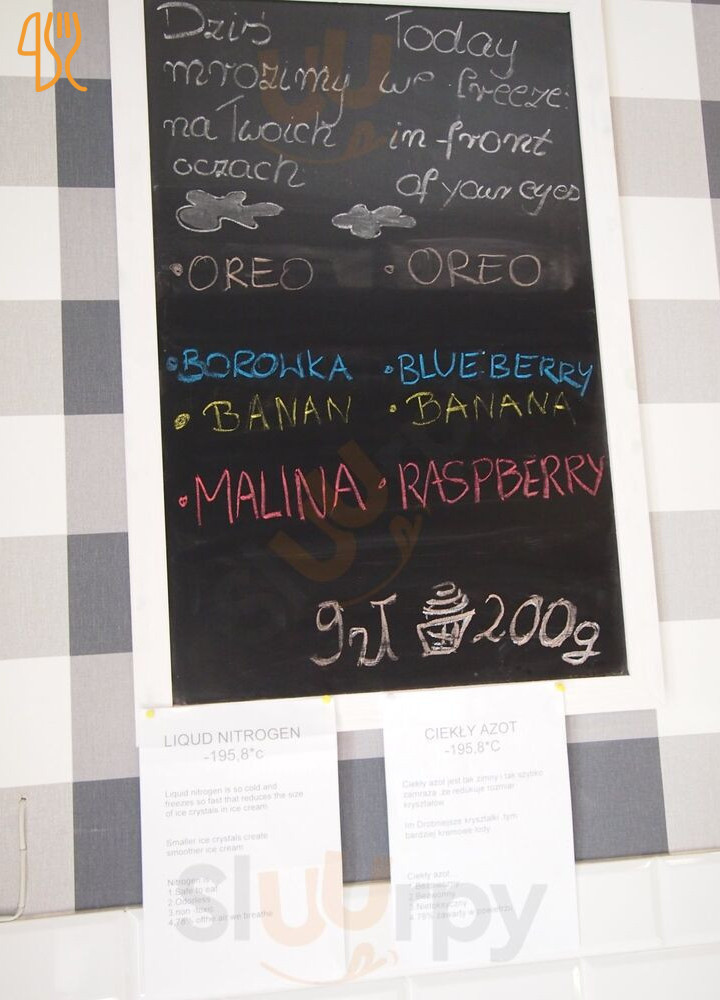 Dziś
mrozimy
na Twoich
oczach
Today
we freeze:
in front
of your eyes
• OREO
• BOROWKA
• BANAN
• MALINA
• OREO
• BLUEBERRY
• BANANA
• RASPBERRY
9zł 200g
LIQUD NITROGEN
-195,8°c
Liquid nitrogen is so cold and
freezes so fast that reduces the size
of ice crystals in ice cream
Smaller ice crystals create
smoother ice cream
Nitrogen is
1.Safe to eat
2.Odorless
3.non-toxic
4.78% of the air we breathe
CIEKŁY AZOT
-195,8°C
Ciekły azot jest tak zimny i tak szybko
zamraża ,że redukuje rozmiar
kryształów
Im Drobniejsze kryształki ,tym
bardziej kremowe lody
Ciekły azot
1.Bezpieczny
2.Bezwonny
3.Nietoksyczny
4.78% zawarty w powietrzu
Sluurpy